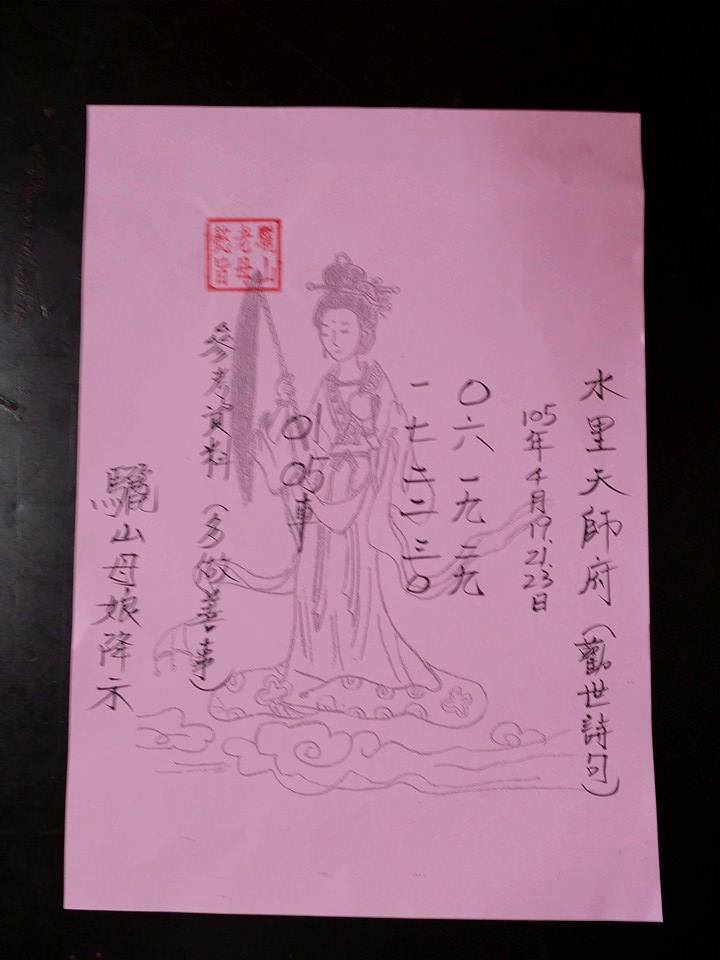 水里天師府(觀世詩句)
105年4月19.21.23日
〇六一九二九
一七二二三〇
01 05車
參考資料(多做善事)
驪山老母懿旨
驪山母娘降示